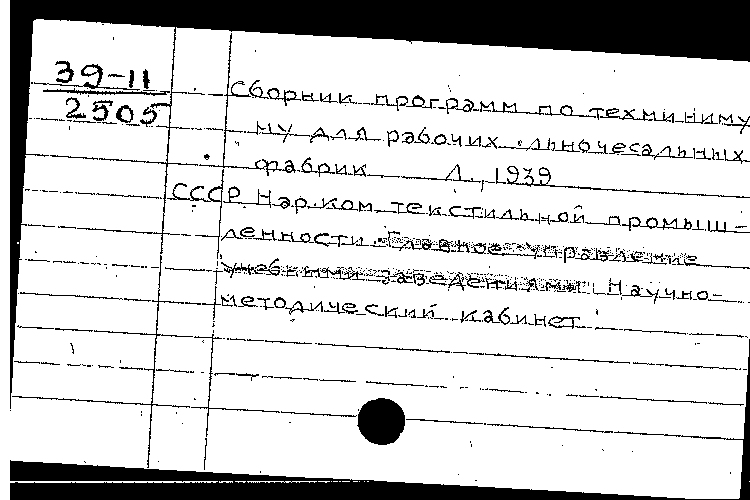 39-11
2505
Сборник программ по техминиму
му для рабочих льночесальных
фабрик Л., 1939
СССР Нар.ком. текстильной промыш-
ленности. Главное управление
учебными заведениями Научно-
методический кабинет